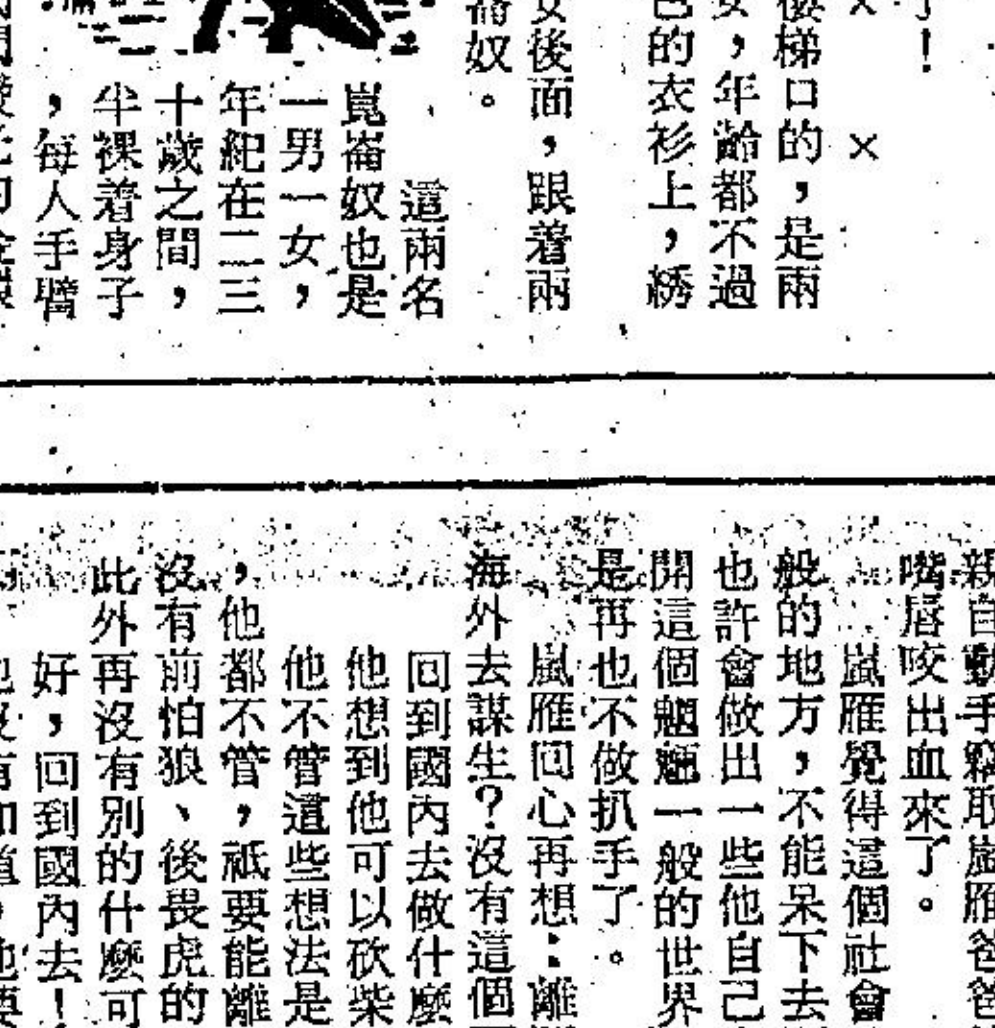 了！
× ×
樓梯口的，是兩
女，年齡都不過
色的衣衫上，綉
女後面，跟着兩
崙奴。
這兩名
崑崙奴也是
一男一女，
年紀在二三
十歲之間，
半裸着身子
，每人手臂
親自動手竊取嵐雁爸爸
嘴唇咬出血來了。
嵐雁覺得這個社會
般的地方，不能呆下去
也許會做出一些他自己
開這個魍魎一般的世界
是再也不做扒手了。
嵐雁回心再想：離
海外去謀生？沒有這個
回到國內去做什麼
他想到他可以砍柴
他不管這些想法是
，他都不管，祗要能離
沒有前怕狼、後畏虎的
此外再沒有別的什麼可
好，回到國內去！